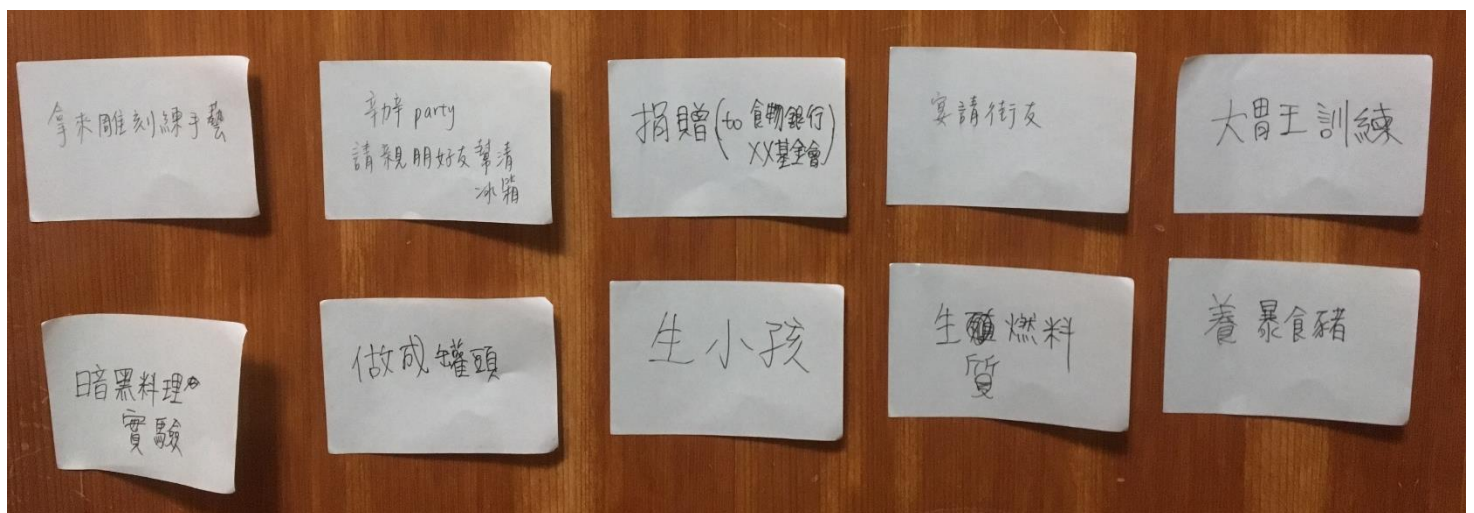 拿來雕刻練手藝
辦 party
請親朋好友幫清
冰箱
捐贈(to 食物銀行
XX基金會)
宴請街友
大胃王訓練
暗黑料理
實驗
做成罐頭
生小孩
生燃料
質
養暴食豬